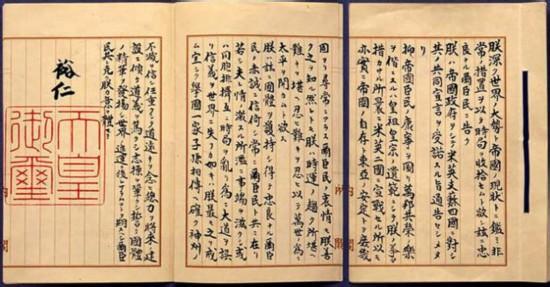 朕深ク世界ノ大勢ト帝國ノ現狀トニ鑑ミ非
常ノ措置ヲ以テ時局ヲ收拾セムト欲シ茲ニ忠
良ナル爾臣民ニ告ク
朕ハ帝國政府ヲシテ米英支蘇四國ニ對シ
其ノ共同宣言ヲ受諾スル旨通告セシメタリ
抑〻帝國臣民ノ康寧ヲ圖リ萬邦共榮ノ樂
ヲ偕ニスルハ皇祖皇宗ノ遺範ニシテ朕ノ拳〻
措カサル所曩ニ米英二國ニ宣戰セル所以モ
亦實ニ帝國ノ自存ト東亞ノ安定トヲ庶幾
内閣
固ヨリ尋常ニアラス爾臣民ノ衷情モ朕善
ク之ヲ知ル然レトモ朕ハ時運ノ趨ク所堪ヘ
難キヲ堪ヘ忍ヒ難キヲ忍ヒ以テ萬世ノ爲ニ
太平ヲ開カムト欲ス
朕ハ茲ニ國體ヲ護持シ得テ忠良ナル爾臣
民ノ赤誠ニ信倚シ常ニ爾臣民ト共ニ在リ
若シ夫レ情ノ激スル所濫ニ事端ヲ滋クシ或
ハ同胞排擠互ニ時局ヲ亂リ爲ニ大道ヲ誤
リ信義ヲ世界ニ失フカ如キハ朕最モ之ヲ戒
ム宜シク擧國一家子孫相傳ヘ確ク神州ノ
内閣
不滅ヲ信シ任重クシテ道遠キヲ念ヒ總力ヲ將來ノ建
設ニ傾ケ道義ヲ篤クシ志操ヲ鞏クシ誓テ國體
ノ精華ヲ發揚シ世界ノ進運ニ後レサラムコトヲ期スヘシ爾臣
民其レ克ク朕カ意ヲ體セヨ
裕仁
天皇
御璽